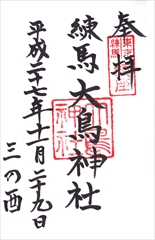 奉拝
練馬大鳥神社
平成二十七年十一月二十九日
三の酉